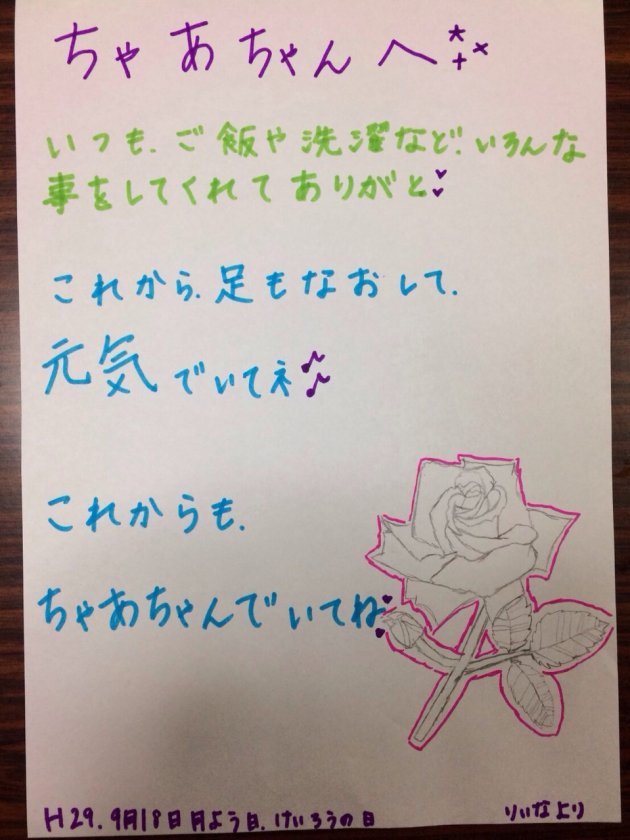 ちゃあちゃんへ
いつも、ご飯や洗濯など、いろんな
事をしてくれてありがと
これから、足もなおして、
元気でいてネ♪♪
これからも、
ちゃあちゃんでいてね
H29. 9月18日月よう日、けいろうの日
りいなより